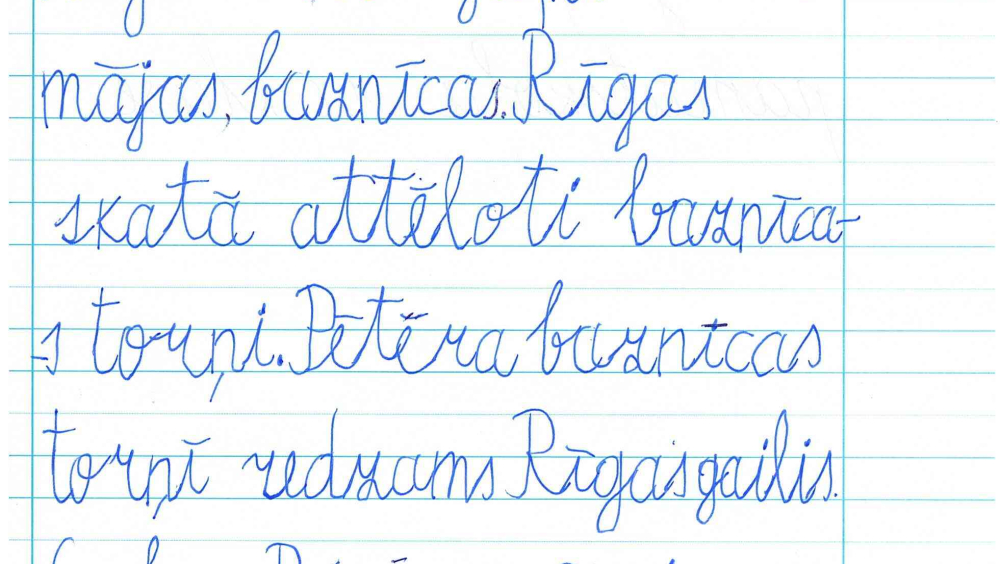 mājas, baznīcas. Rīgas
skatā attēloti baznīca-
-s torņi. Pētēra baznīcas
torņī redzams Rīgas gailis.